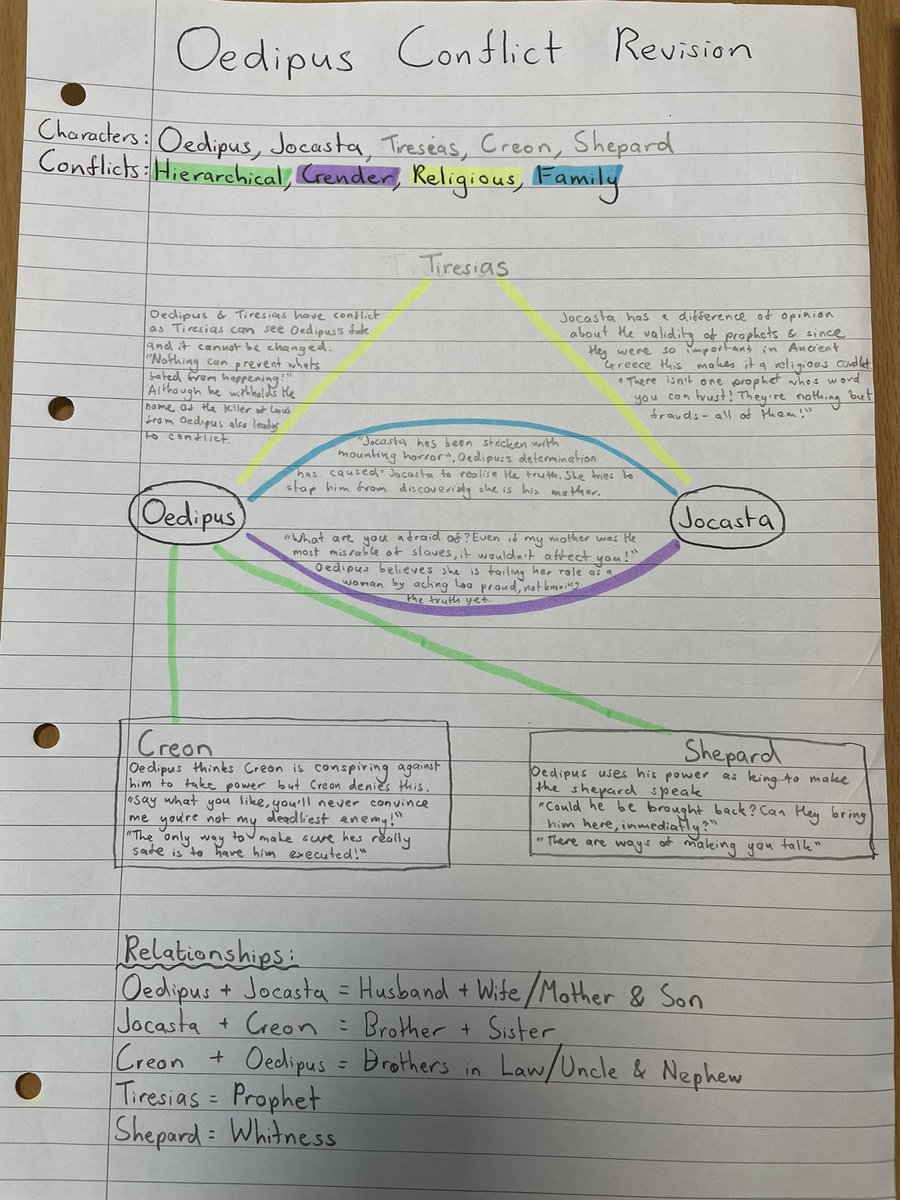 Oedipus Conflict Revision
Characters: Oedipus, Jocasta, Tireseas, Creon, Shepard
Conflicts: Hierarchical, Gender, Religious, Family
Tiresias
Oedipus & Tiresias have conflict
as Tiresias can see Oedipus's fate
and it cannot be changed.
"Nothing can prevent whats
fated from happening!"
Although he withholds the
name of the killer of Laius
from Oedipus also leades
to conflict.
Jocasta has a difference of opinion
about the validity of prophets & since
they were so important in Ancient
Greece this makes it a religious conflict.
"There isn't one prophet whos word
you can trust! They're nothing but
frauds - all of them!"
"Jocasta has been stricken with
mounting horror". Oedipus's determination
has caused Jocasta to realise the truth. She tries to
stop him from discovering she is his mother.
Oedipus
Jocasta
"What are you afraid of? Even if my mother was the
most misrable of slaves, it wouldn't affect you!"
Oedipus believes she is failing her role as a
woman by acting too proud, not knowing
the truth yet.
Creon
Oedipus thinks Creon is conspiring against
him to take power but Creon denies this.
"Say what you like, you'll never convince
me you're not my deadliest enemy!"
"The only way to make sure hes really
safe is to have him executed!"
Shepard
Oedipus uses his power as king to make
the shepard speak
"Could he be brought back? Can they bring
him here, inmediatly?"
"There are ways of making you talk"
Relationships:
Oedipus + Jocasta = Husband + Wife/Mother & Son
Jocasta + Creon = Brother + Sister
Creon + Oedipus = Brothers in Law/Uncle & Nephew
Tiresias = Prophet
Shepard = Whitness